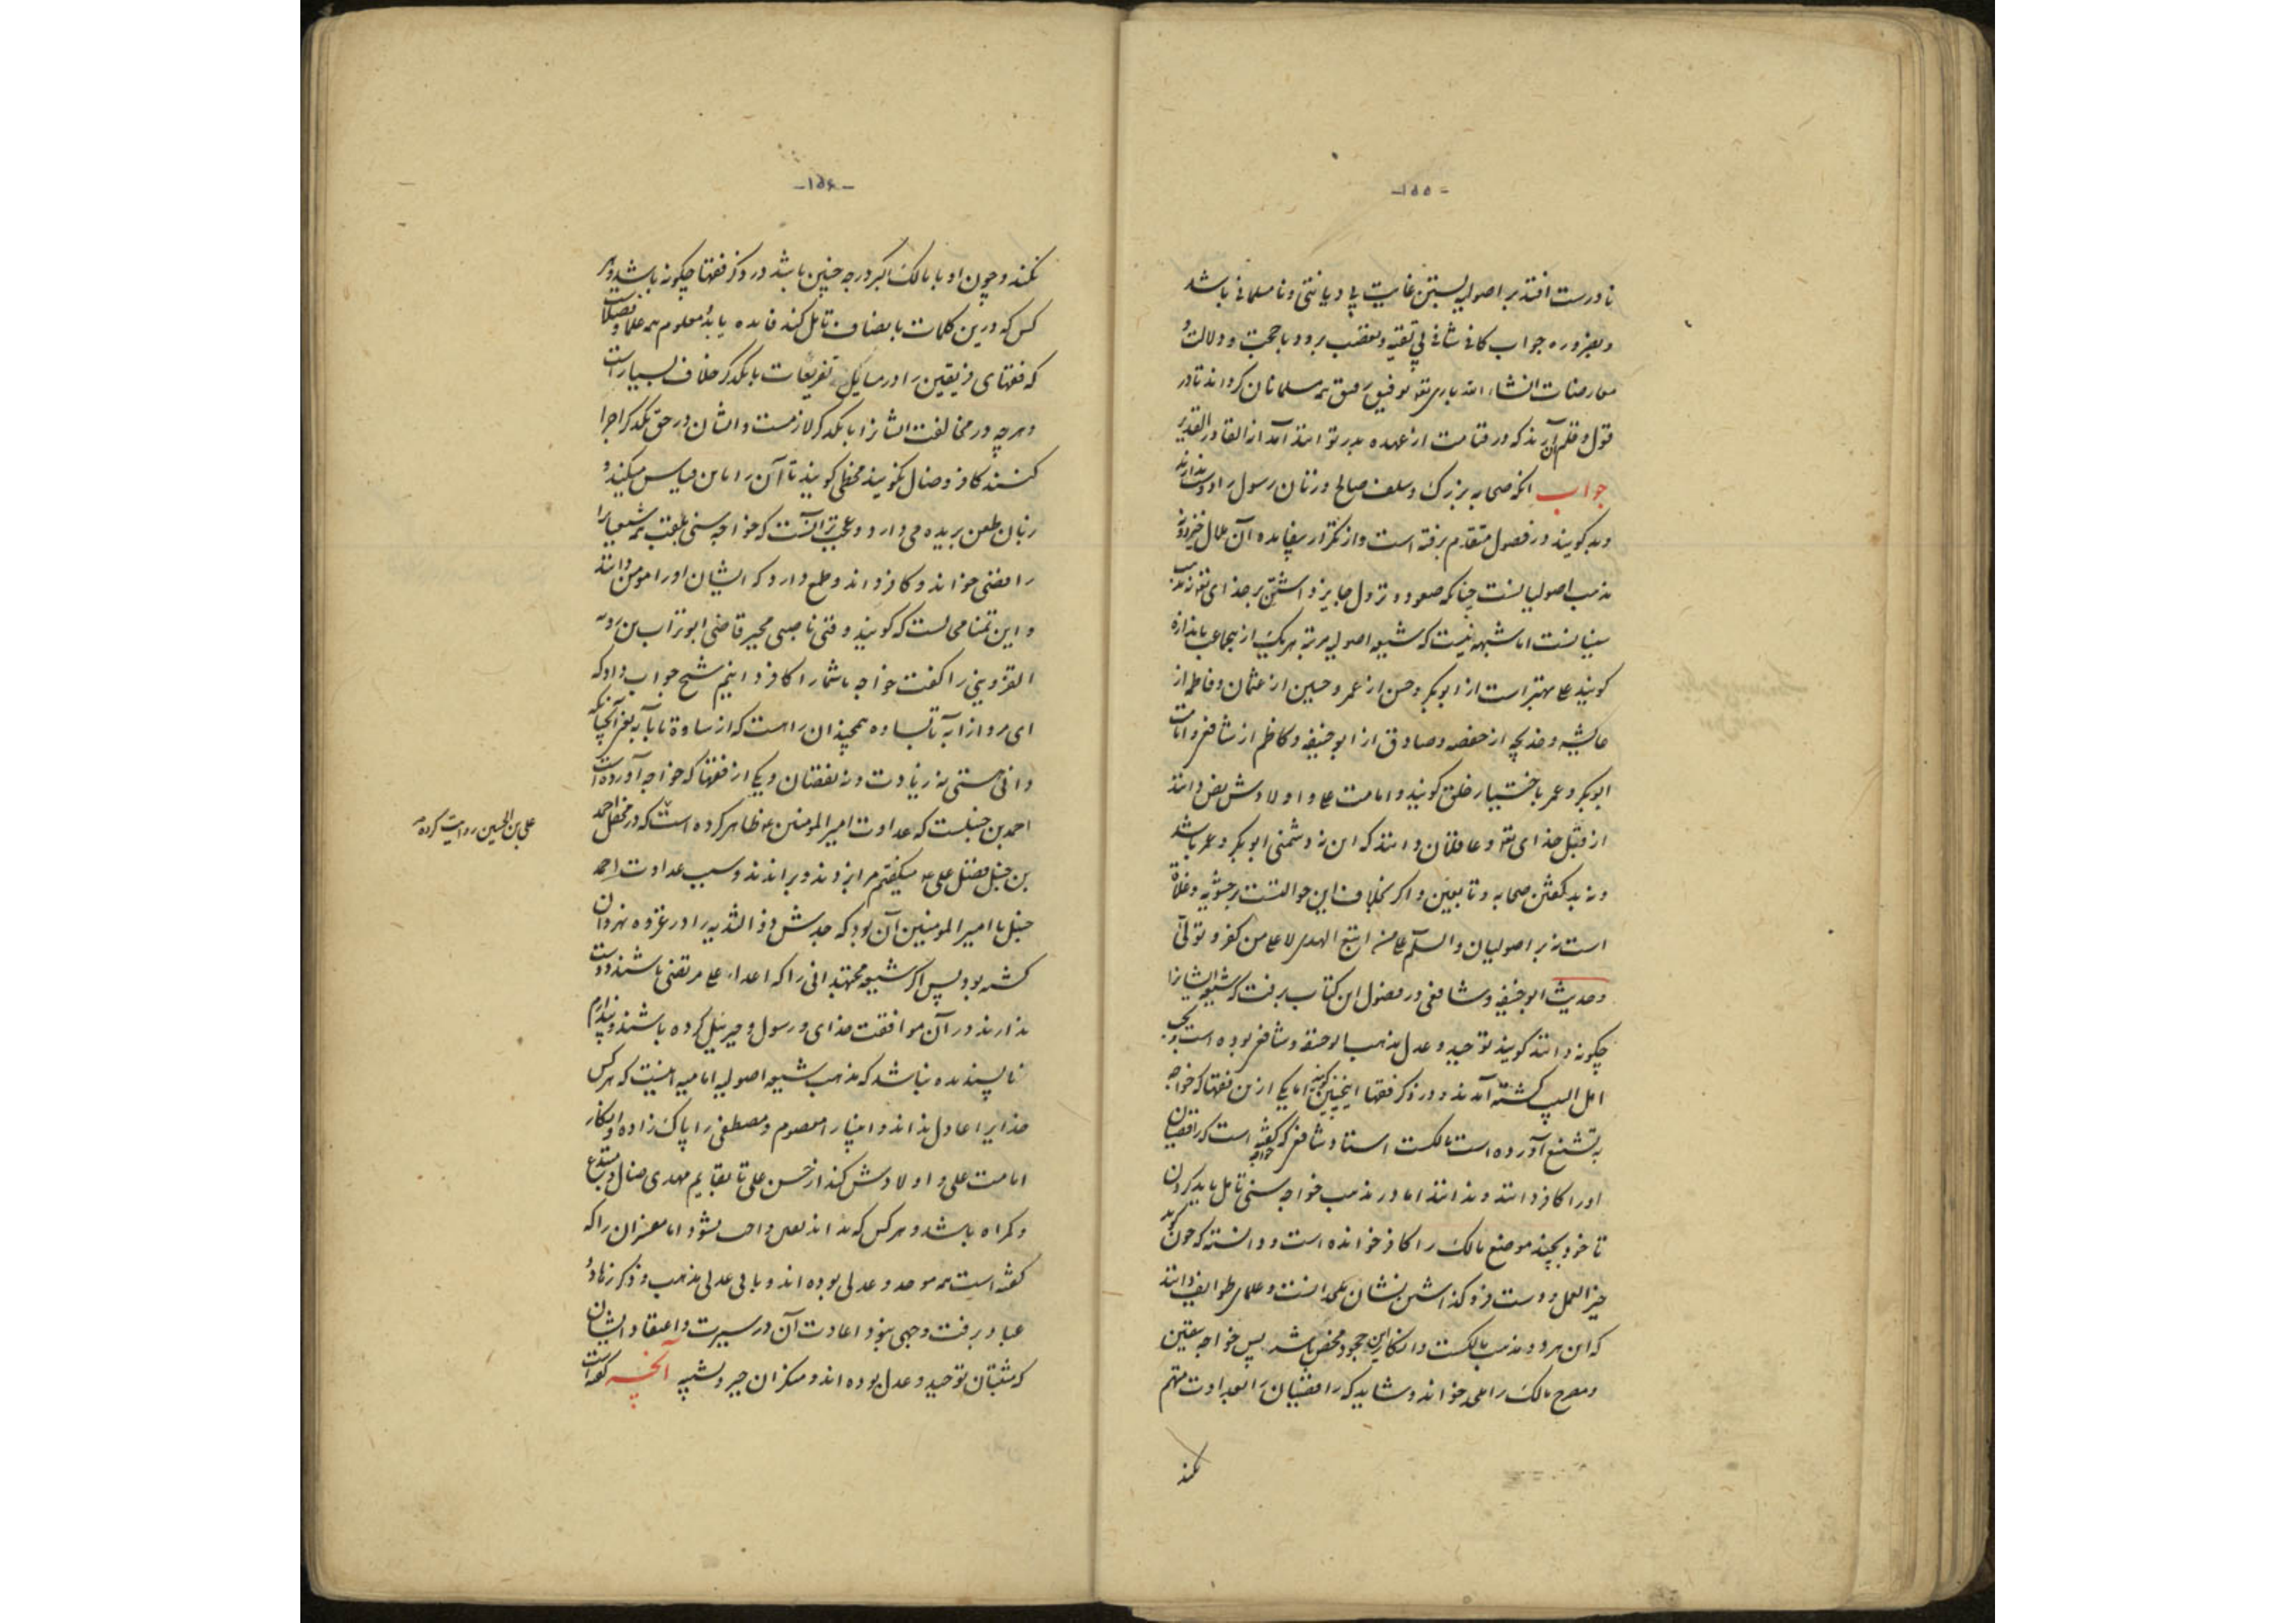 -۱۵۵-
نادرست افتد بر اصولیه بستن غایت بی دیانتی و نامسلمانی باشد
و بضروره جواب کافی شافی بی تقیه و تعصب برود با حجت و دلالت و
معارضات انشاء الله باری تعه توفیق رفیق همه مسلمانان گرداند تا در
قول و قلم آن آرند که در قیامت از عهده بدر توانند آمد انه القادر القدیر
جواب آنکه صحابه بزرک و سلف صالح و زنان رسول را دوست ندارند
و بد گویند در فصول متقدم برفته است و از تکرار بیفایده آن ملال خیزد و نه
مذهب اصولیانست چنانکه صعود و نزول جایز داشتن بر خدای تعه نه مذهب
سنیانست اما شبهه نیست که شیعه اصولیه مرتبه هر یک از جماعت باندازه
کویند علی بهتر است از ابوبکر و حسن از عمر و حسین از عثمان و فاطمه از
عایشه و خدیجه از حفصه و صادق از ابوحنیفه و کاظم از شافعی و امامت
ابوبکر و عمر باختیار خلق کویند و امامت علی و اولادش بنص دانند
از قبل خدای تعه و عاقلان دانند که این نه دشمنی ابوبکر و عمر باشد
و نه بد گفتن صحابه و تابعین و اگر بخلاف این حوالتست بر حشویه و غلاة
است نه بر اصولیان والسلم علی من اتبع الهدی لا علی من کفر و تولی
و حدیث ابوحنیفه و شافعی در فصول این کتاب برفت که شیعه ایشانرا
چگونه دانند کویند توحید و عدل مذهب ابوحنیفه و شافعی بوده است و محب
اهل البیت کشته آمدند و در ذکر فقها اینچنین کویند اما یکی ازین فقها که خواجه
به تشنیع آورده است مالکست استاد شافعی که کفته است که رافضیان
اورا کافر دانند و ندانند اما در مذهب خواجه سنی تامل باید کردن
تا خود بچند موضع مالک را کافر خوانده است و دانسته که چون گوید
خیر العمل و دست فرو کذاشتن نشان ملحدانست و علمای طوایف دانند
که این هر دو مذهب مالکست و انکار این جحود محض باشد پس خواجه بیقین
و مصرح مالک را ملحد خواند و شاید که رافضیان را بعداوت متهم
نکند
-۱۵۶-
نکند و چون او با مالک اکبر درجه چنین باشد در ذکر فقها چگونه باشد و هر
کس که درین کلمات بانصاف تامل کند فایده یابد و معلوم همه علما و فضلاست
که فقهای فریقین را در مسایل تفریعات با یکدگر خلاف بسیار است
و هرچه در مخالفت ایشانرا با یکدگر لازمست و ایشان در حق یکدگر اجرا
کنند کافر و ضال نکویند مخطی کویند تا آن را با این قیاس میکند و
زبان طعن بریده می دارد و عجب تر آنست که خواجه سنی بلقب همه شیعیانرا
رافضی خواند و کافر داند و طمع دارد که ایشان اورا مومن دانند
و این تمنا محالست که کویند وقتی ناصبی مجبر قاضی ابوتراب بن رویه
القزوینی را کفت خواجه ما شما را کافر دانیم شیخ جواب داد که
ای مرد از آبه تا بساوه همچندان راهست که از ساوة تا بآبه یعنی آنچنانکه
دانی هستی نه زیادت و نه نقصان و یکی از فقها که خواجه آورده است
احمد بن حنبلست که عداوت امیرالمومنین ع ظاهر کرده است که در محفل احمد
علی بن الحسین روایت کرده
بن حنبل فضل علی ع میکفتم مرا بزدند و براندند و سبب عداوت احمد
حنبل با امیر المومنین آن بود که جدش ذو الثدیه را در غزوه نهروان
کشته بود پس اگر شیعه مجتهدانی را که اعداء علی مرتضی باشند دوست
ندارند در آن موافقت خدای و رسول و جبرئیل کرده باشند و پندارم
ناپسندیده نباشد که مذهب شیعه اصولیه امامیه اینست که هر کس
خدایرا عادل نداند و انبیا را معصوم و مصطفی را پاک زاده و انکار
امامت علی و اولادش کند از حسن علی تا بقایم مهدی ضال و مبتدع
و کمراه باشد و هر کس که نداند بعلی واجب نشود اما مفسران را که
کفته است همه موحد و عدلی بوده اند و باقی عدلی مذهب و ذکر زهاد و
عباد برفت وجهی نبود اعادت آن در سیرت و اعتقاد ایشان
که مثبتان توحید و عدل بوده اند و منکران جبر و تشبیه آنچه کفته است